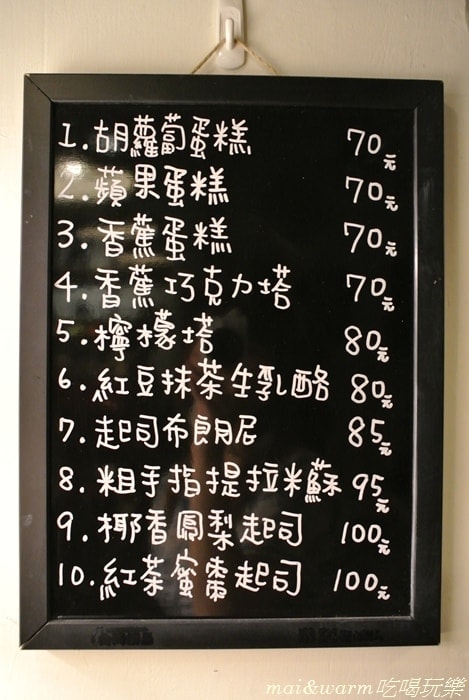 1. 胡蘿蔔蛋糕 70元
2. 蘋果蛋糕 70元
3. 香蕉蛋糕 70元
4. 香蕉巧克力塔 70元
5. 檸檬塔 80元
6. 紅豆抹茶生乳酪 80元
7. 起司布朗尼 85元
8. 粗手指提拉米蘇 95元
9. 椰香鳳梨起司 100元
10. 紅茶蜜棗起司 100元
mai&warm吃喝玩樂